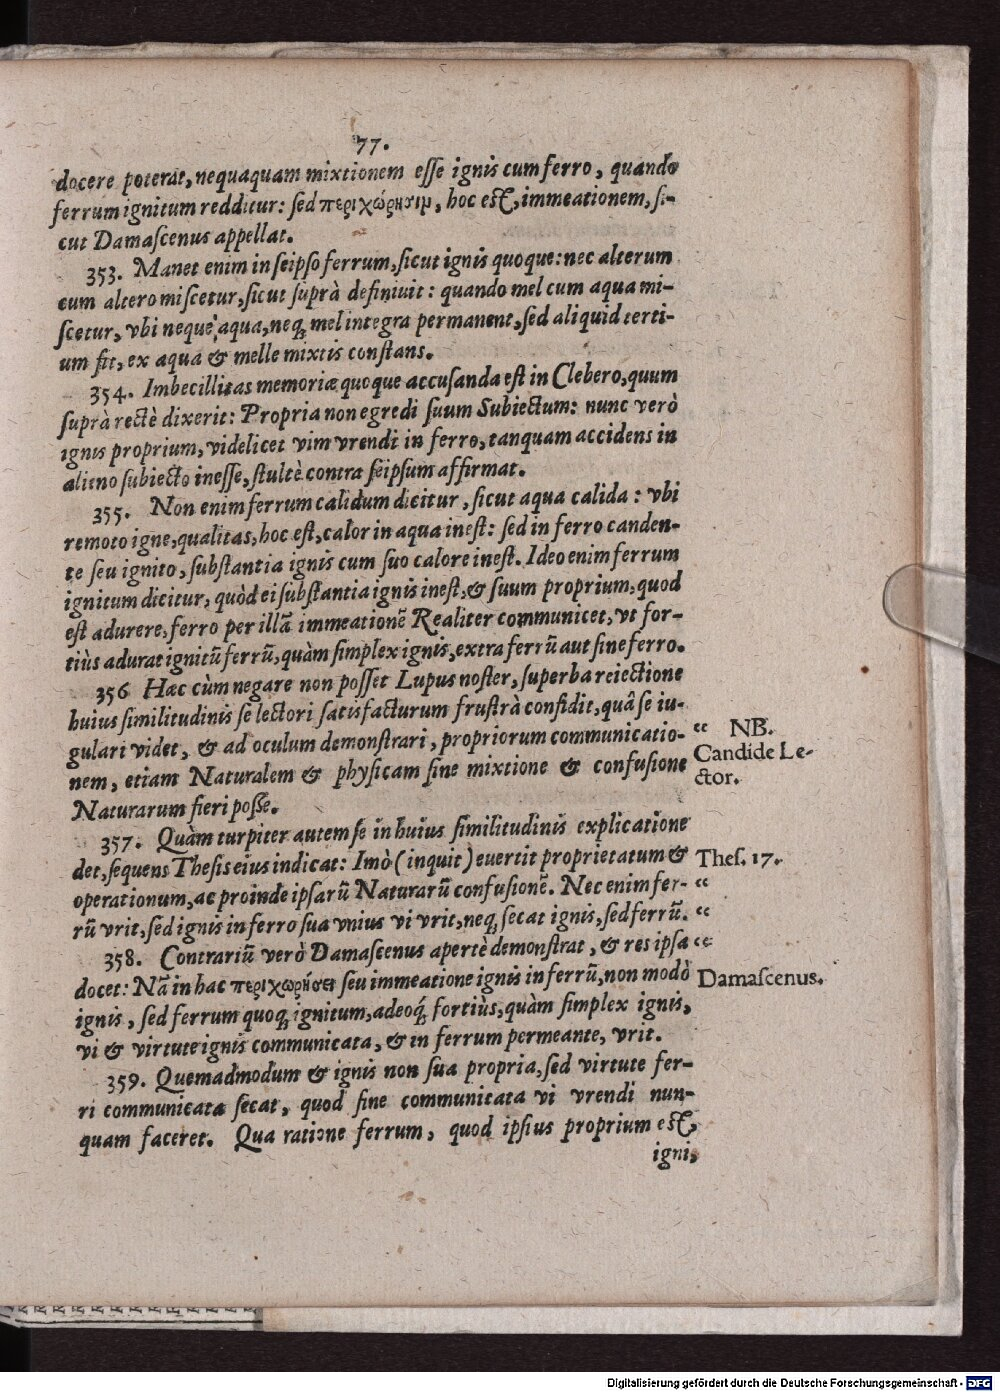 77.
docere poterat, nequaquam mixtionem eſſe ignis cum ferro, quando
ferrum ignitum redditur: ſed περιχώρησιμ, hoc eſt, immeationem, ſi-
cut Damaſcenus appellat.
353. Manet enim in ſeipſo ferrum, ſicut ignis quoque: nec alterum
cum altero miſcetur, ſicut ſuprà definiuit: quando mel cum aqua mi-
ſcetur, vbi neque aqua, neq; mel integra permanent, ſed aliquid terti-
um fit, ex aqua & melle mixtis conſtans.
354. Imbecillitas memoriæ quoque accuſanda eſt in Clebero, quum
ſuprà rectè dixerit: Propria non egredi ſuum Subiectum: nunc verò
ignis proprium, videlicet vim vrendi in ferro, tanquam accidens in
alieno ſubiecto ineſſe, ſtultè contra ſeipſum affirmat.
355. Non enim ferrum calidum dicitur, ſicut aqua calida: vbi
remoto igne, qualitas, hoc eſt, calor in aqua ineſt: ſed in ferro canden-
te ſeu ignito, ſubſtantia ignis cum ſuo calore ineſt. Ideo enim ferrum
ignitum dicitur, quòd ei ſubſtantia ignis ineſt, & ſuum proprium, quod
eſt adurere, ferro per illā immeationē Realiter communicet, vt for-
tiùs adurat ignitū ferrū, quàm ſimplex ignis, extra ferrū aut ſine ferro.
356 Hæc cùm negare non poſſet Lupus noſter, ſuperba reiectione
huius ſimilitudinis ſe lectori ſatisfacturum fruſtrà confidit, quâ ſe iu-
gulari videt, & ad oculum demonſtrari, propriorum communicatio- “ NB.
nem, etiam Naturalem & phyſicam ſine mixtione & confuſione Candide Le-
ctor.
Naturarum fieri poſſe.
357. Quàm turpiter autem ſe in huius ſimilitudinis explicatione
det, ſequens Theſis eius indicat: Imò (inquit) euertit proprietatum & Theſ. 17.
operationum, ac proinde ipſarū Naturarū confuſionē. Nec enim fer- “
rū vrit, ſed ignis in ferro ſua vnius vi vrit, neq; ſecat ignis, ſed ferrū. “
358. Contrariū verò Damaſcenus apertè demonſtrat, & res ipſa “
docet: Nā in hac περιχωρήσει ſeu immeatione ignis in ferrū, non modò Damaſcenus.
ignis, ſed ferrum quoq; ignitum, adeoq́; fortiùs, quàm ſimplex ignis,
vi & virtute ignis communicata, & in ferrum permeante, vrit.
359. Quemadmodum & ignis non ſua propria, ſed virtute fer-
ri communicata ſecat, quod ſine communicata vi vrendi nun-
quam faceret. Qua ratione ferrum, quod ipſius proprium eſt,
igni,
Digitalisierung gefördert durch die Deutsche Forschungsgemeinschaft - DFG